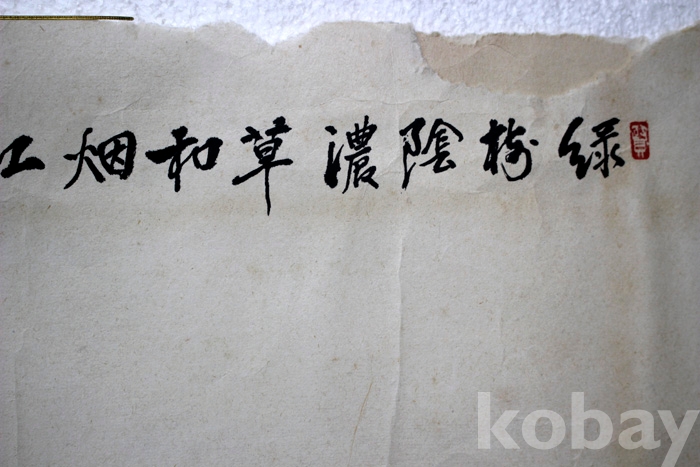 綠樹陰濃草和烟江
kobay